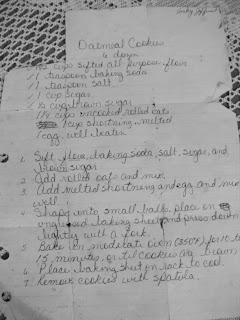 Oatmeal Cookies
4 dozen
cups sifted all purpose flour
1 teaspoon baking soda
1 teaspoon salt
1 cup sugar
1/2 cup brown sugar
cups uncooked rolled oats
1 cup shortening, melted
1 egg, well beaten
1. Sift flour, baking soda, salt, sugar, and
brown sugar
2. Add rolled oats and mix.
3. Add melted shortening and egg and mix
well.
4. Shape into small balls, place on
ungreased baking sheet and press down
lightly with a fork.
5. Bake in moderate oven (350°F) for 10 to
15 minutes, or til cookies are brown
6. Place baking sheet on rack to cool.
7. Remove cookies with spatula.